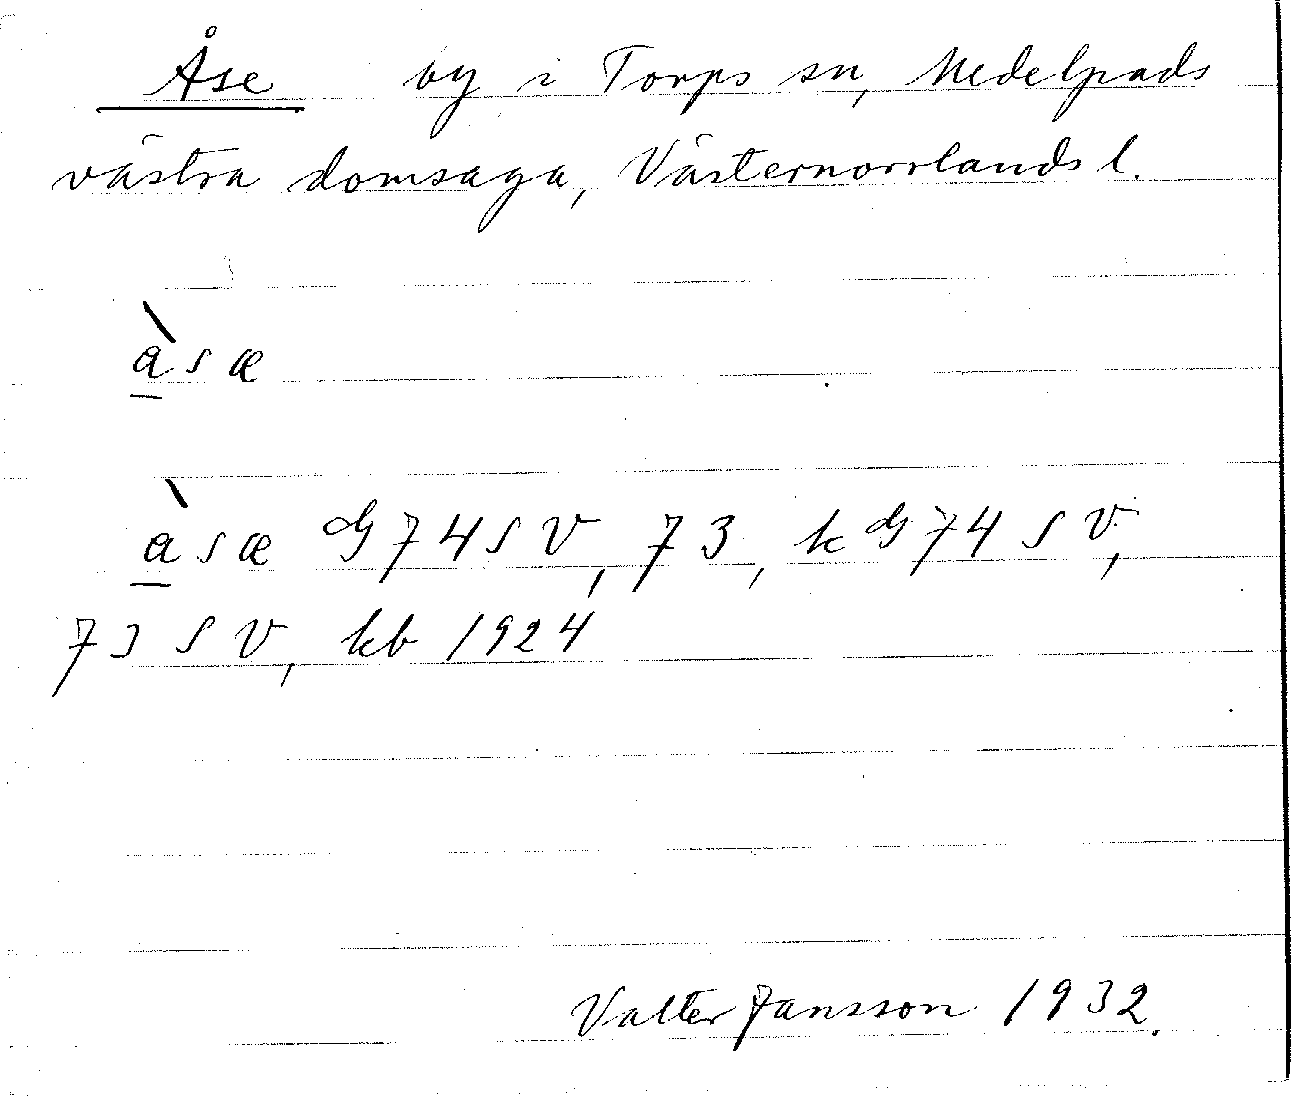 Åse by i Torps sn, Medelpads
västra domsaga, Västernorrlands l.
à̱sæ
à̱sæ dG 74 S V, 73, k dG 74 S V,
73 S V, kb 1924
Valter Jansson 1932.